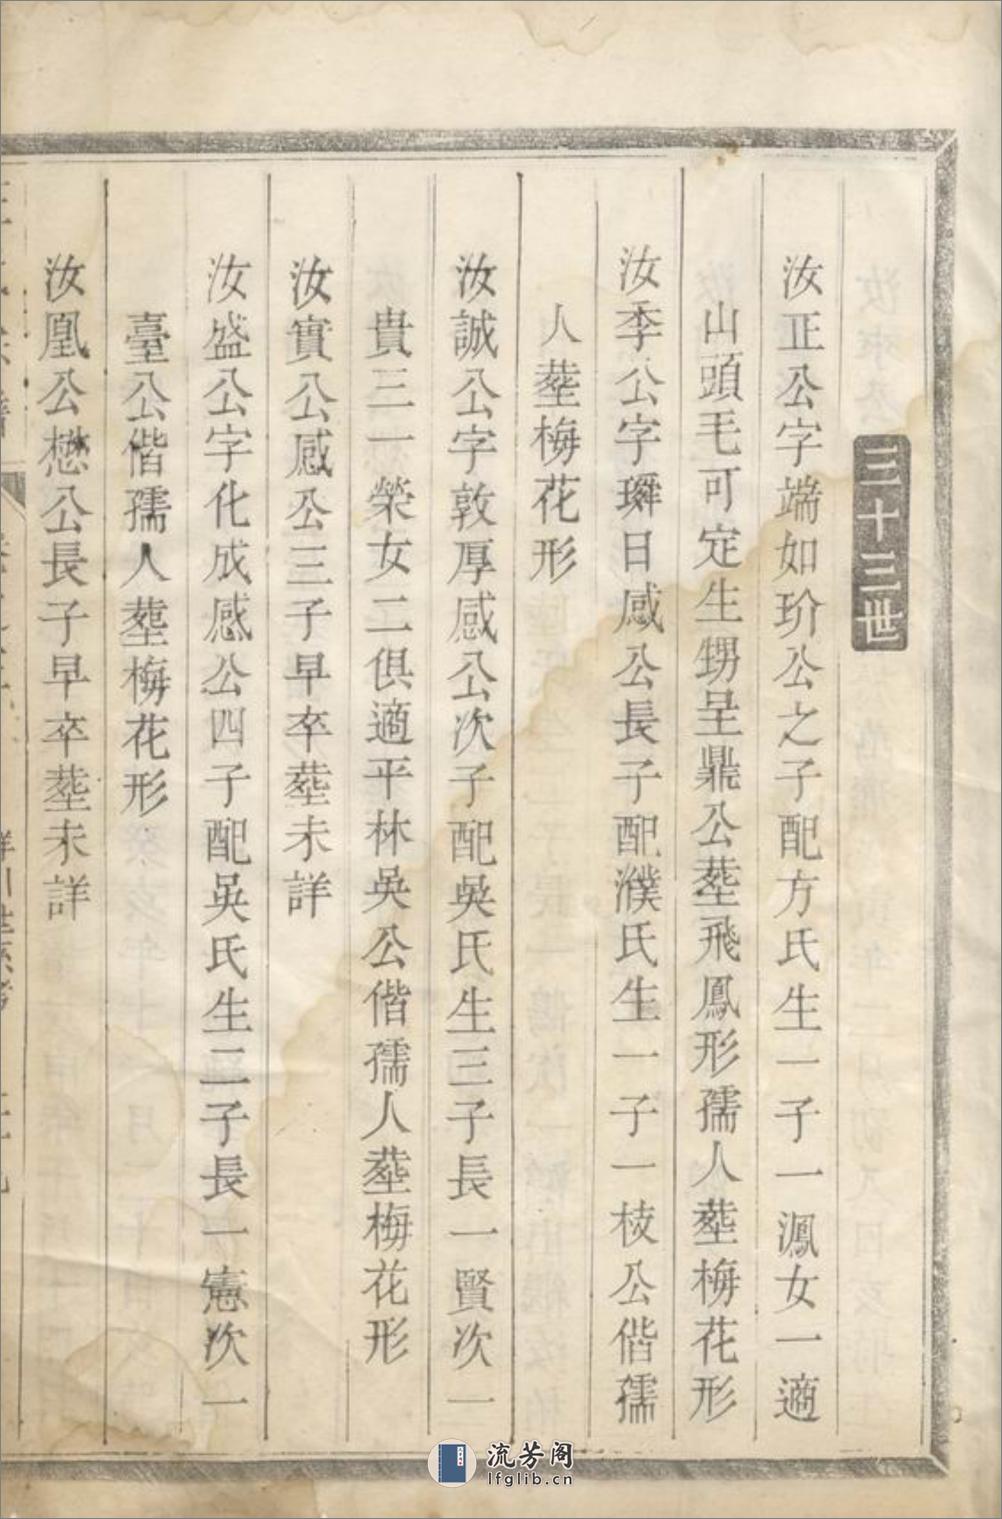 三十三世
汝正公字端如玠公之子配方氏生一子一鳳女一適
山頭毛可定生甥呈鼎公塟飛鳳形孺人塟梅花形
汝季公字日感公長子配濮氏生一子一棱公偕孺
人塟梅花形
汝誠公字敦厚感公次子配吳氏生三子長一賢次一
貴三一榮女二俱適平林吳公偕孺人塟梅花形
汝實公感公三子早卒塟未詳
汝盛公字化成感公四子配吳氏生二子長一憲次一
臺公偕孺人塟梅花形
汝凰公懋公長子早卒塟未詳
流芳阁
lfglib.cn